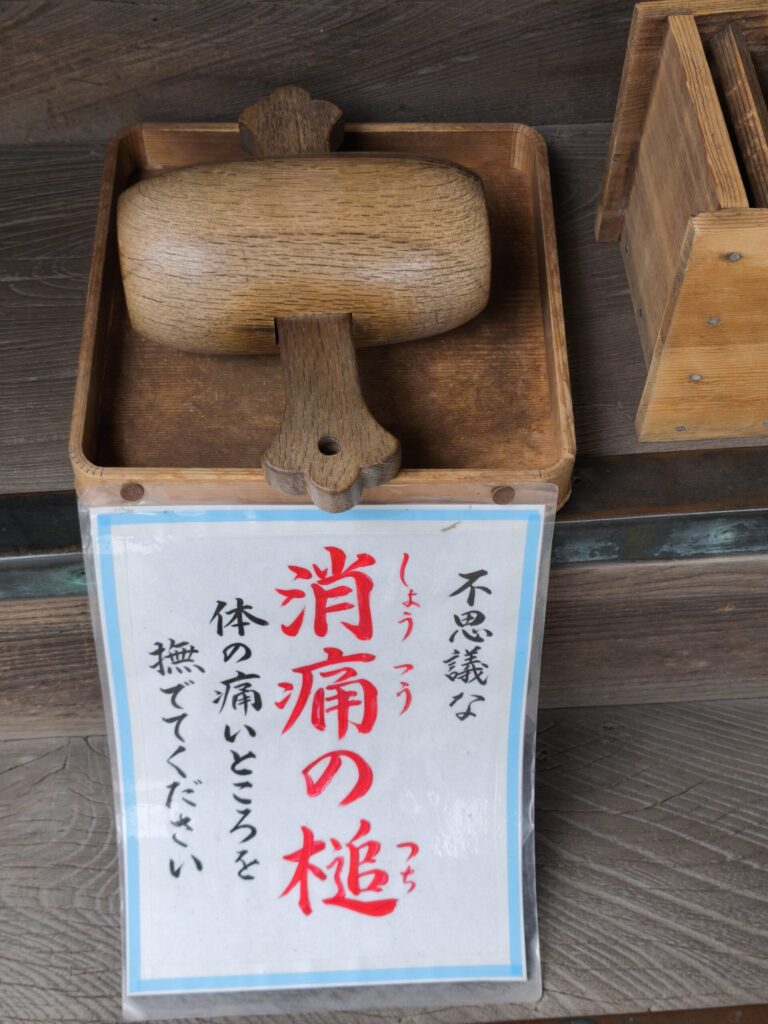 不思議な
しょうつう
消痛の槌
つち
体の痛いところを
撫でてください